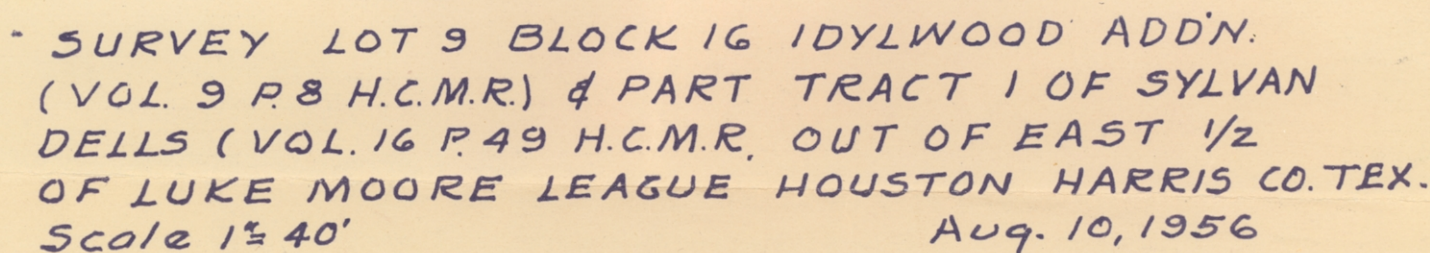 SURVEY LOT 9 BLOCK 16 IDYLWOOD ADD'N.
(VOL. 9 P. 8 H.C.M.R.) & PART TRACT 1 OF SYLVAN
DELLS (VOL. 16 P. 49 H.C.M.R. OUT OF EAST 1/2
OF LUKE MOORE LEAGUE HOUSTON HARRIS CO. TEX.
Scale 1"= 40' Aug. 10, 1956